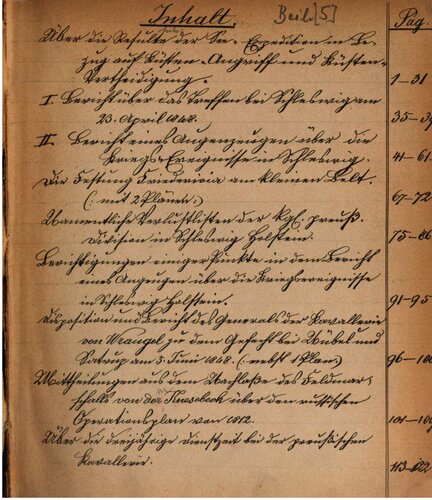 Inhalt. Beih[5] Pag.
Über die Resulte der See-Expedition in Be-
zug auf Küsten-Angriff und Küsten-
Vertheidigung. 1-31
I. Bericht über das Treffen bei Schleswig am
23. April 1848. 35-39
II. Bericht eines Augenzeugen über die
Kriegs-Ereignisse in Schleswig. 41-61.
Die Festung Friedericia am kleinen Belt.
(: mit 2 Plänen.) 67-72
Namentliche Verlustlisten der kgl. preuß.
Division in Schleswig Holstein. 75-86
Berichtigungen einiger Punkte in dem Bericht
eines Augenzeugen über die Kriegsereignisse
in Schleswig Holstein. 91-95
Disposition und Bericht des Generals der Kavallerie
von Wrangel zu dem Gefecht bei Nübel und
Satrup am 5. Juni 1848. (: nebst 1 Plan.) 96-100
Mittheilungen aus dem Nachlaße des Feldmar-
schalls von dem Knesebeck über den russischen
Operationsplan von 1812. 101-
Über die dreijährige Dienstzeit bei der preußischen
Kavallerie. 113-122